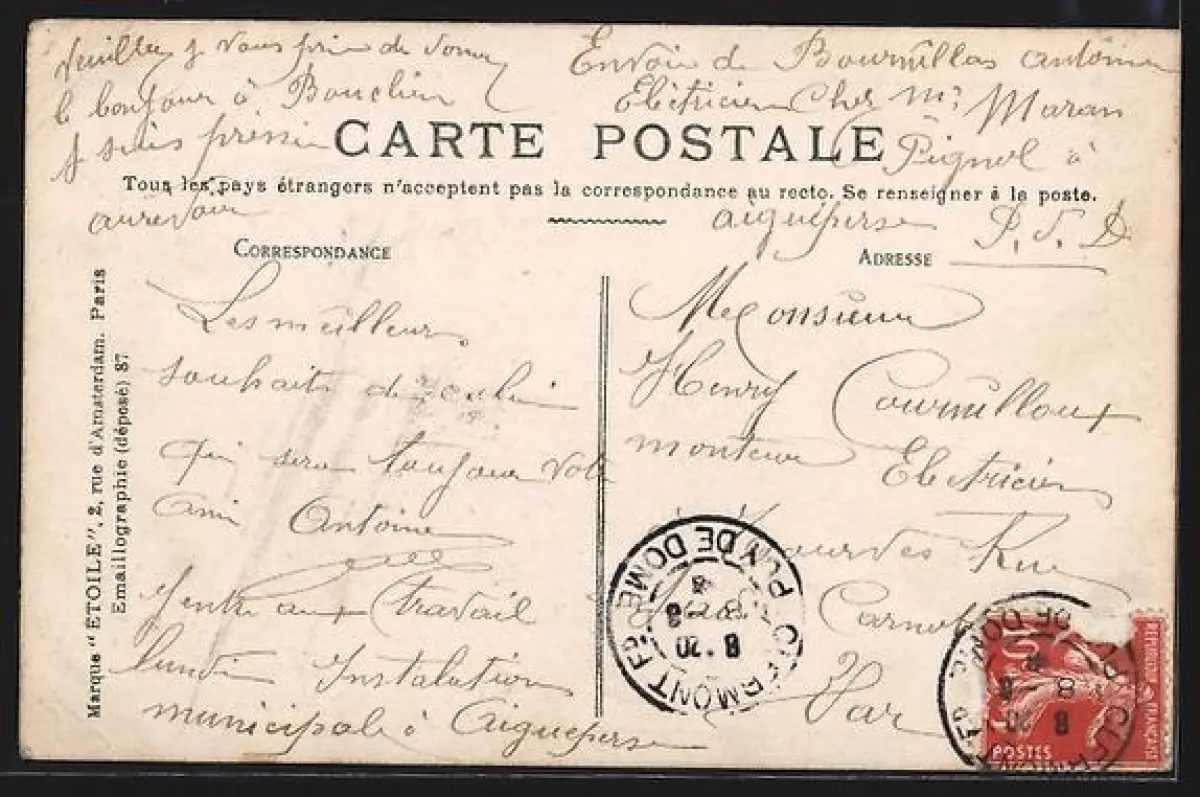 Veuillez j vous prie de donner
le bonjour à
j suis pressé
aurevoir
Envoi de Bournillas antoine
Eléctricien Chez Mr Maran
Pignol à
aigueperse P. d. D
CARTE POSTALE
Tous les pays étrangers n'acceptent pas la correspondance au recto. Se renseigner à la poste.
CORRESPONDANCE
ADRESSE
Marque "ETOILE", 2, rue d'Amsterdam. Paris
Emaillographie (déposé) 87
Les meilleurs
souhaits de celui
qui sera toujours votre
ami Antoine
travail
lundi Instalation
municipale à Aigueperse
Monsieur
Henry Cournilloux
monteur Electricien
Rue
Carnot
Var
CLERMONT-FD
PUY DE DOME
8 *20
8 - 8
CLERMONT-FD
PUY DE DOME
8 *20
8 - 8
REPUBLIQUE FRANÇAISE
10
POSTES